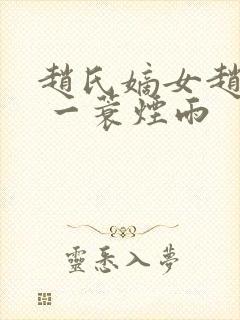 趙氏嫡女趙
一蓑煙雨
靈悉入夢